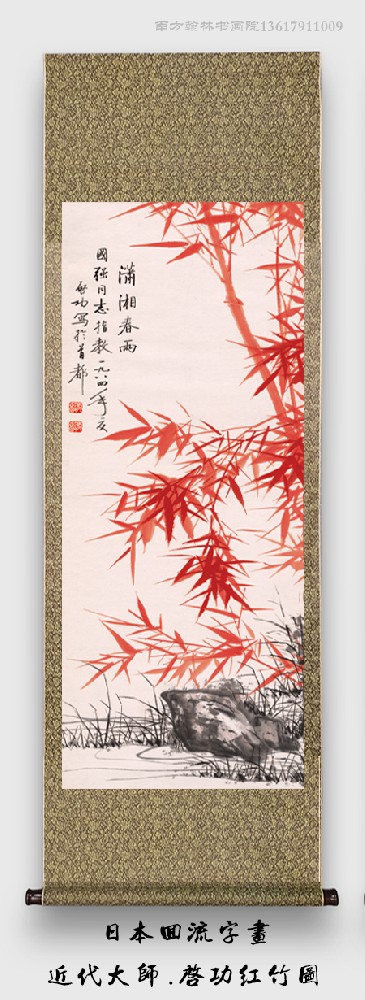 南方翰林书画院13617911009
瀟湘春雨
國強同志指教一九八四年夏
啓功寫於首都
日本回流字畫
近代大師.啓功红竹圖